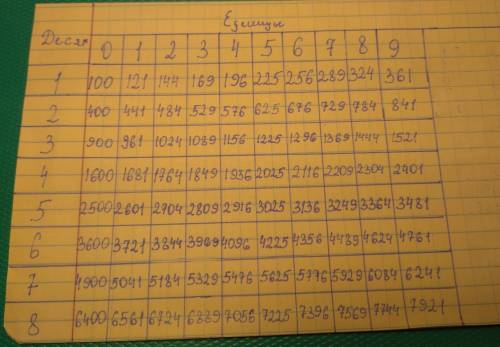 Единицы
Десят
0 1 2 3 4 5 6 7 8 9
1 100 121 144 169 196 225 256 289 324 361
2 400 441 484 529 576 625 676 729 784 841
3 900 961 1024 1089 1156 1225 1296 1369 1444 1521
4 1600 1681 1764 1849 1936 2025 2116 2209 2304 2401
5 2500 2601 2704 2809 2916 3025 3136 3249 3364 3481
6 3600 3721 3844 3969 4096 4225 4356 4489 4624 4761
7 4900 5041 5184 5329 5476 5625 5776 5929 6084 6241
8 6400 6561 6724 6889 7056 7225 7396 7569 7744 7921